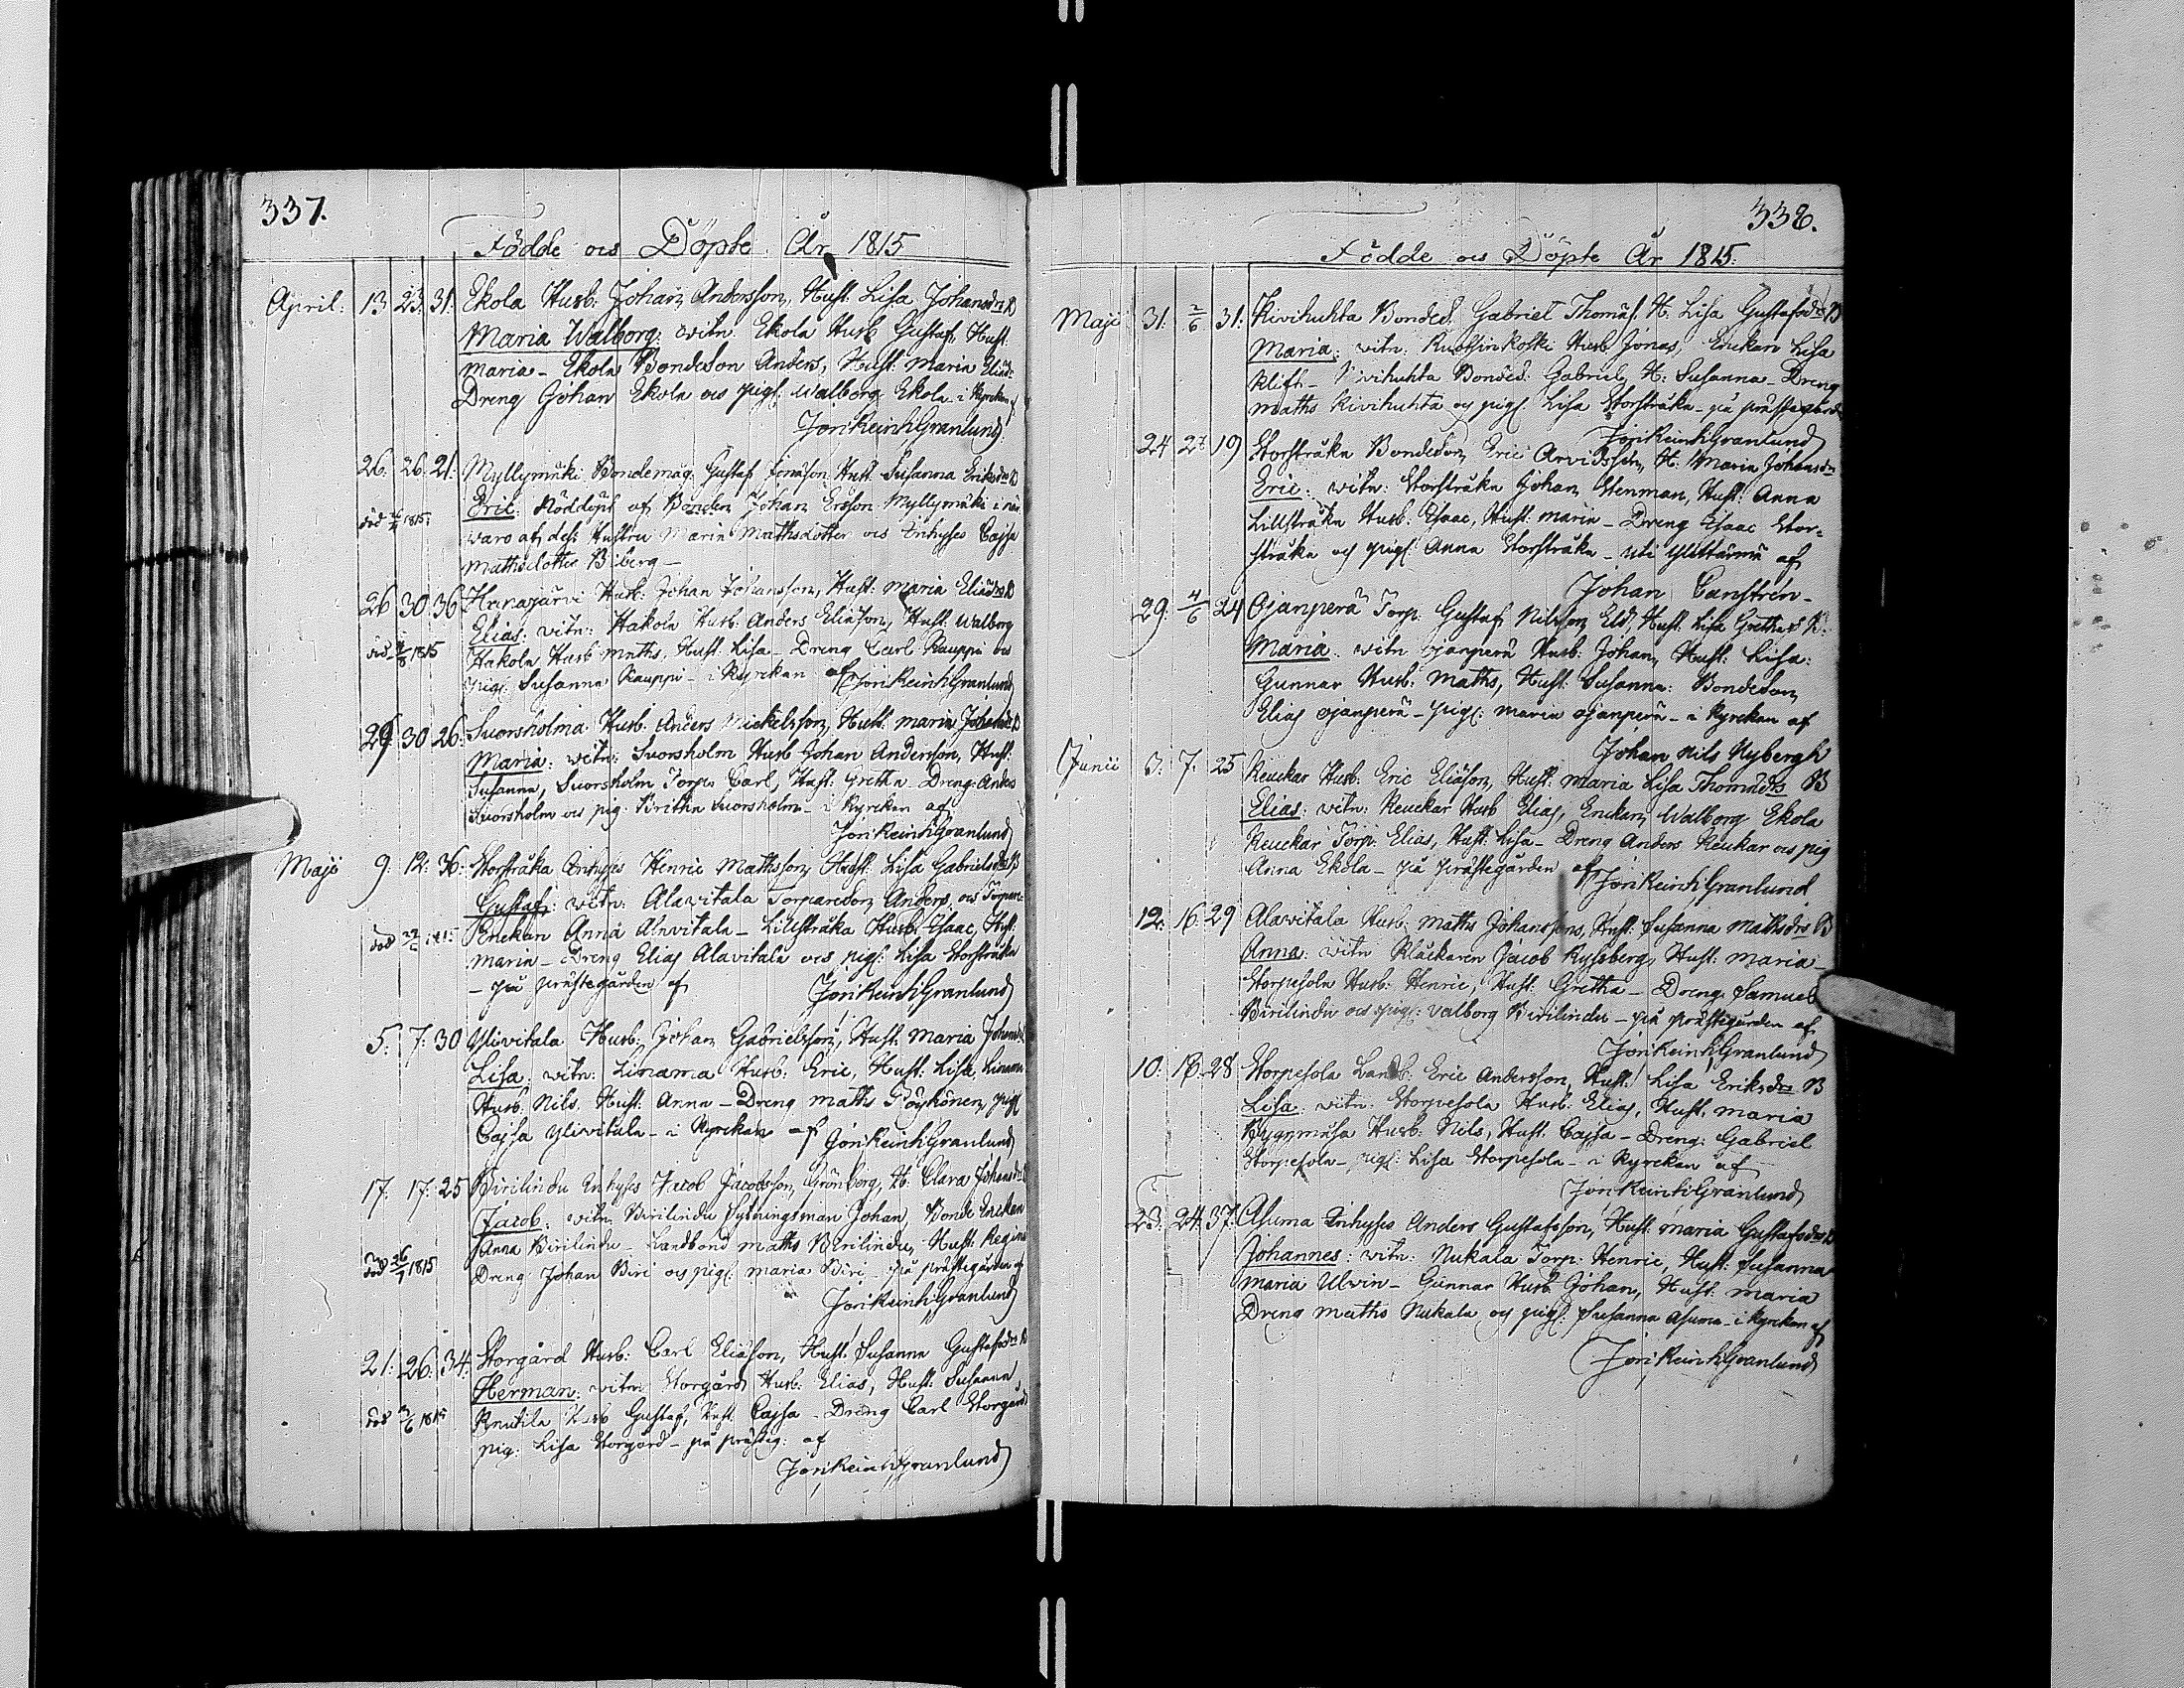 337.
Födde ocs Döpte År 1815
April: 13 23: 31: Ekola Husb: Johan Andersson, Hust: Lisa Johansdr B
Maria Walborg: witn: Ekola Husb Gustaf, Hust:
Maria - Ekola Bondeson Anders, Hust: Maria
Dreng Johan Ekola ocs pig: Walborg Ekola - i Kyrckan af
Granlund
26: 26: 21: Myllymäki Bondemåg: Gustaf Hust: Susanna Eriksdr B
Eric: Nöddöpt af Bonden Johan Ersson Myllymäki i när
död 1815: waro af dess Hustru Maria Mathsdotter ocs Inhyses Cajsa
Mathsdotter Biberg -
26 30 36 Husb: Johan Johansson, Hust: Maria
Elias: witn: Hakola Husb: Anders Eliäson, Hust: Walborg
1815 Hakola Husb Maths, Hust: Lisa - Dreng Carl Rauppi ocs
pig: Susanna Rauppi - i Kyrckan af Granlund
29 30 26: Suorsholma Husb: Anders Mickelsson, Hust: Maria
Maria: witn: Suorsholm Husb Johan Andersson, Hust:
Susanna, Suorsholm Torp: Carl, Hust: Gretha Dreng: Anders
Suorsholm ocs pig: Suorsholm - i Kyrckan af
Granlund
Maji 9: 12: 36: Storstråka Inhyses Henric Mathsson, Hust: Lisa Gabrielsdr B
Gustaf: witn: Alavitala Anders, ocs
död 1815 Enckan Anna Alavitala - Lillstråka Husb: Esaac, Hust:
Maria - Dreng Elias Alavitala ocs pig: Lisa Storstråka
- på prästegården af Granlund
5: 7: 30 Ylivitala Husb: Johan Gabrielsson, Hust: Maria
Lisa: witn: Linama Husb: Eric, Hust: Lisa, Linama
Husb: Nils, Hust: Anna - Dreng Maths Pöyhönen, pig:
Cajsa Ylivitala - i Kyrckan af Granlund
17: 17: 25 Birilindu Inhyses Jacob Jacobsson, Grönberg, H: Clara
Jacob: witn: Birilindu Johan, Bonde Enckan
Anna Birilindu - Landbond Maths Birilindu, Hust: Regina
död 26/7 1815 Dreng Johan Biri ocs pig: Maria Biri - på prästegården af
Granlund
21: 26: 34: Storgård Husb: Carl Eliäson, Hust: Susanna Gustafsdr B
Herman: witn: Storgård Husb: Elias, Hust: Susanna,
död Knutila Husb Gustaf, Hust: Cajsa - Dreng Carl Storgård
pig: Lisa Storgård - på prästg: af
Granlund
338.
Födde ocs Döpte År 1815:
Maji 31: 2/6 31: Kivihuhta Bondes: Gabriel H: Lisa Gustafsdr B
Maria: witn: Husb Jonas, Enckan Lisa
Klift - Kivihuhta Bondes: Gabriel, H: Susanna - Dreng
Maths Kivihuhta och pig: Lisa Storstråka - på prästegård
Granlund
24 27 19 Storstråka Bondeson Eric Arvidsson, H: Maria
Eric: witn: Storstråka Johan Stenman, Hust: Anna
Lillstråka Husb: Esaac, Hust: Maria - Dreng Esaac Stor-
stråka och pig: Anna Storstråka - uti Yttermä af
Johan Canstrén -
29: 4/6 24 Ojanperä Torp: Gustaf Nilsson Hust: Lisa
Maria: witn Ojanperä Husb: Johan, Hust: Lisa:
Gunnar Husb: Maths, Hust: Susanna: Bondeson
Elias Ojanperä - pig: Maria Ojanperä - i Kyrckan af
Johan Nils Nybergh
Junii 3: 7: 25 Reuckar Husb: Eric Eliäson, Hust: Maria Lisa B
Elias: witn: Reuckar Husb Elias, Enckan Walborg Ekola
Reuckar Torp: Elias, Hust: Lisa - Dreng Anders Reukar ocs pig
Anna Ekola - på prästegården af Granlund
12: 16: 29 Alavitala Husb: Maths Johanssons, Hust: Susanna Mathsdr B
Anna: witn Klåckaren Jacob Rysberg, Hust: Maria -
Storpesola Husb: Henric, Hust: Gretha - Dreng Samuel
Birilindu ocs pig: Valborg Birilindu - på prästegården af
Granlund
10: 18: 28 Storpesola Landb: Eric Andersson, Hust: Lisa Eriksdr B
Lisa: witn: Storpesola Husb: Elias, Hust: Maria
Husb: Nils, Hust: Cajsa - Dreng: Gabriel
Storpesola - pig: Lisa Storpesola - i Kyrckan af
Granlund
23: 24: 37: Asuma Inhyses Anders Gustafsson, Hust: Maria Gustafsdr B
Johannes: witn: Nukala Torp: Henric, Hust: Susanna
Maria Ulvin - Gunnar Husb Johan, Hust: Maria
Dreng Maths Nukala och pig: Susanna Asuma - i Kyrckan af
Granlund